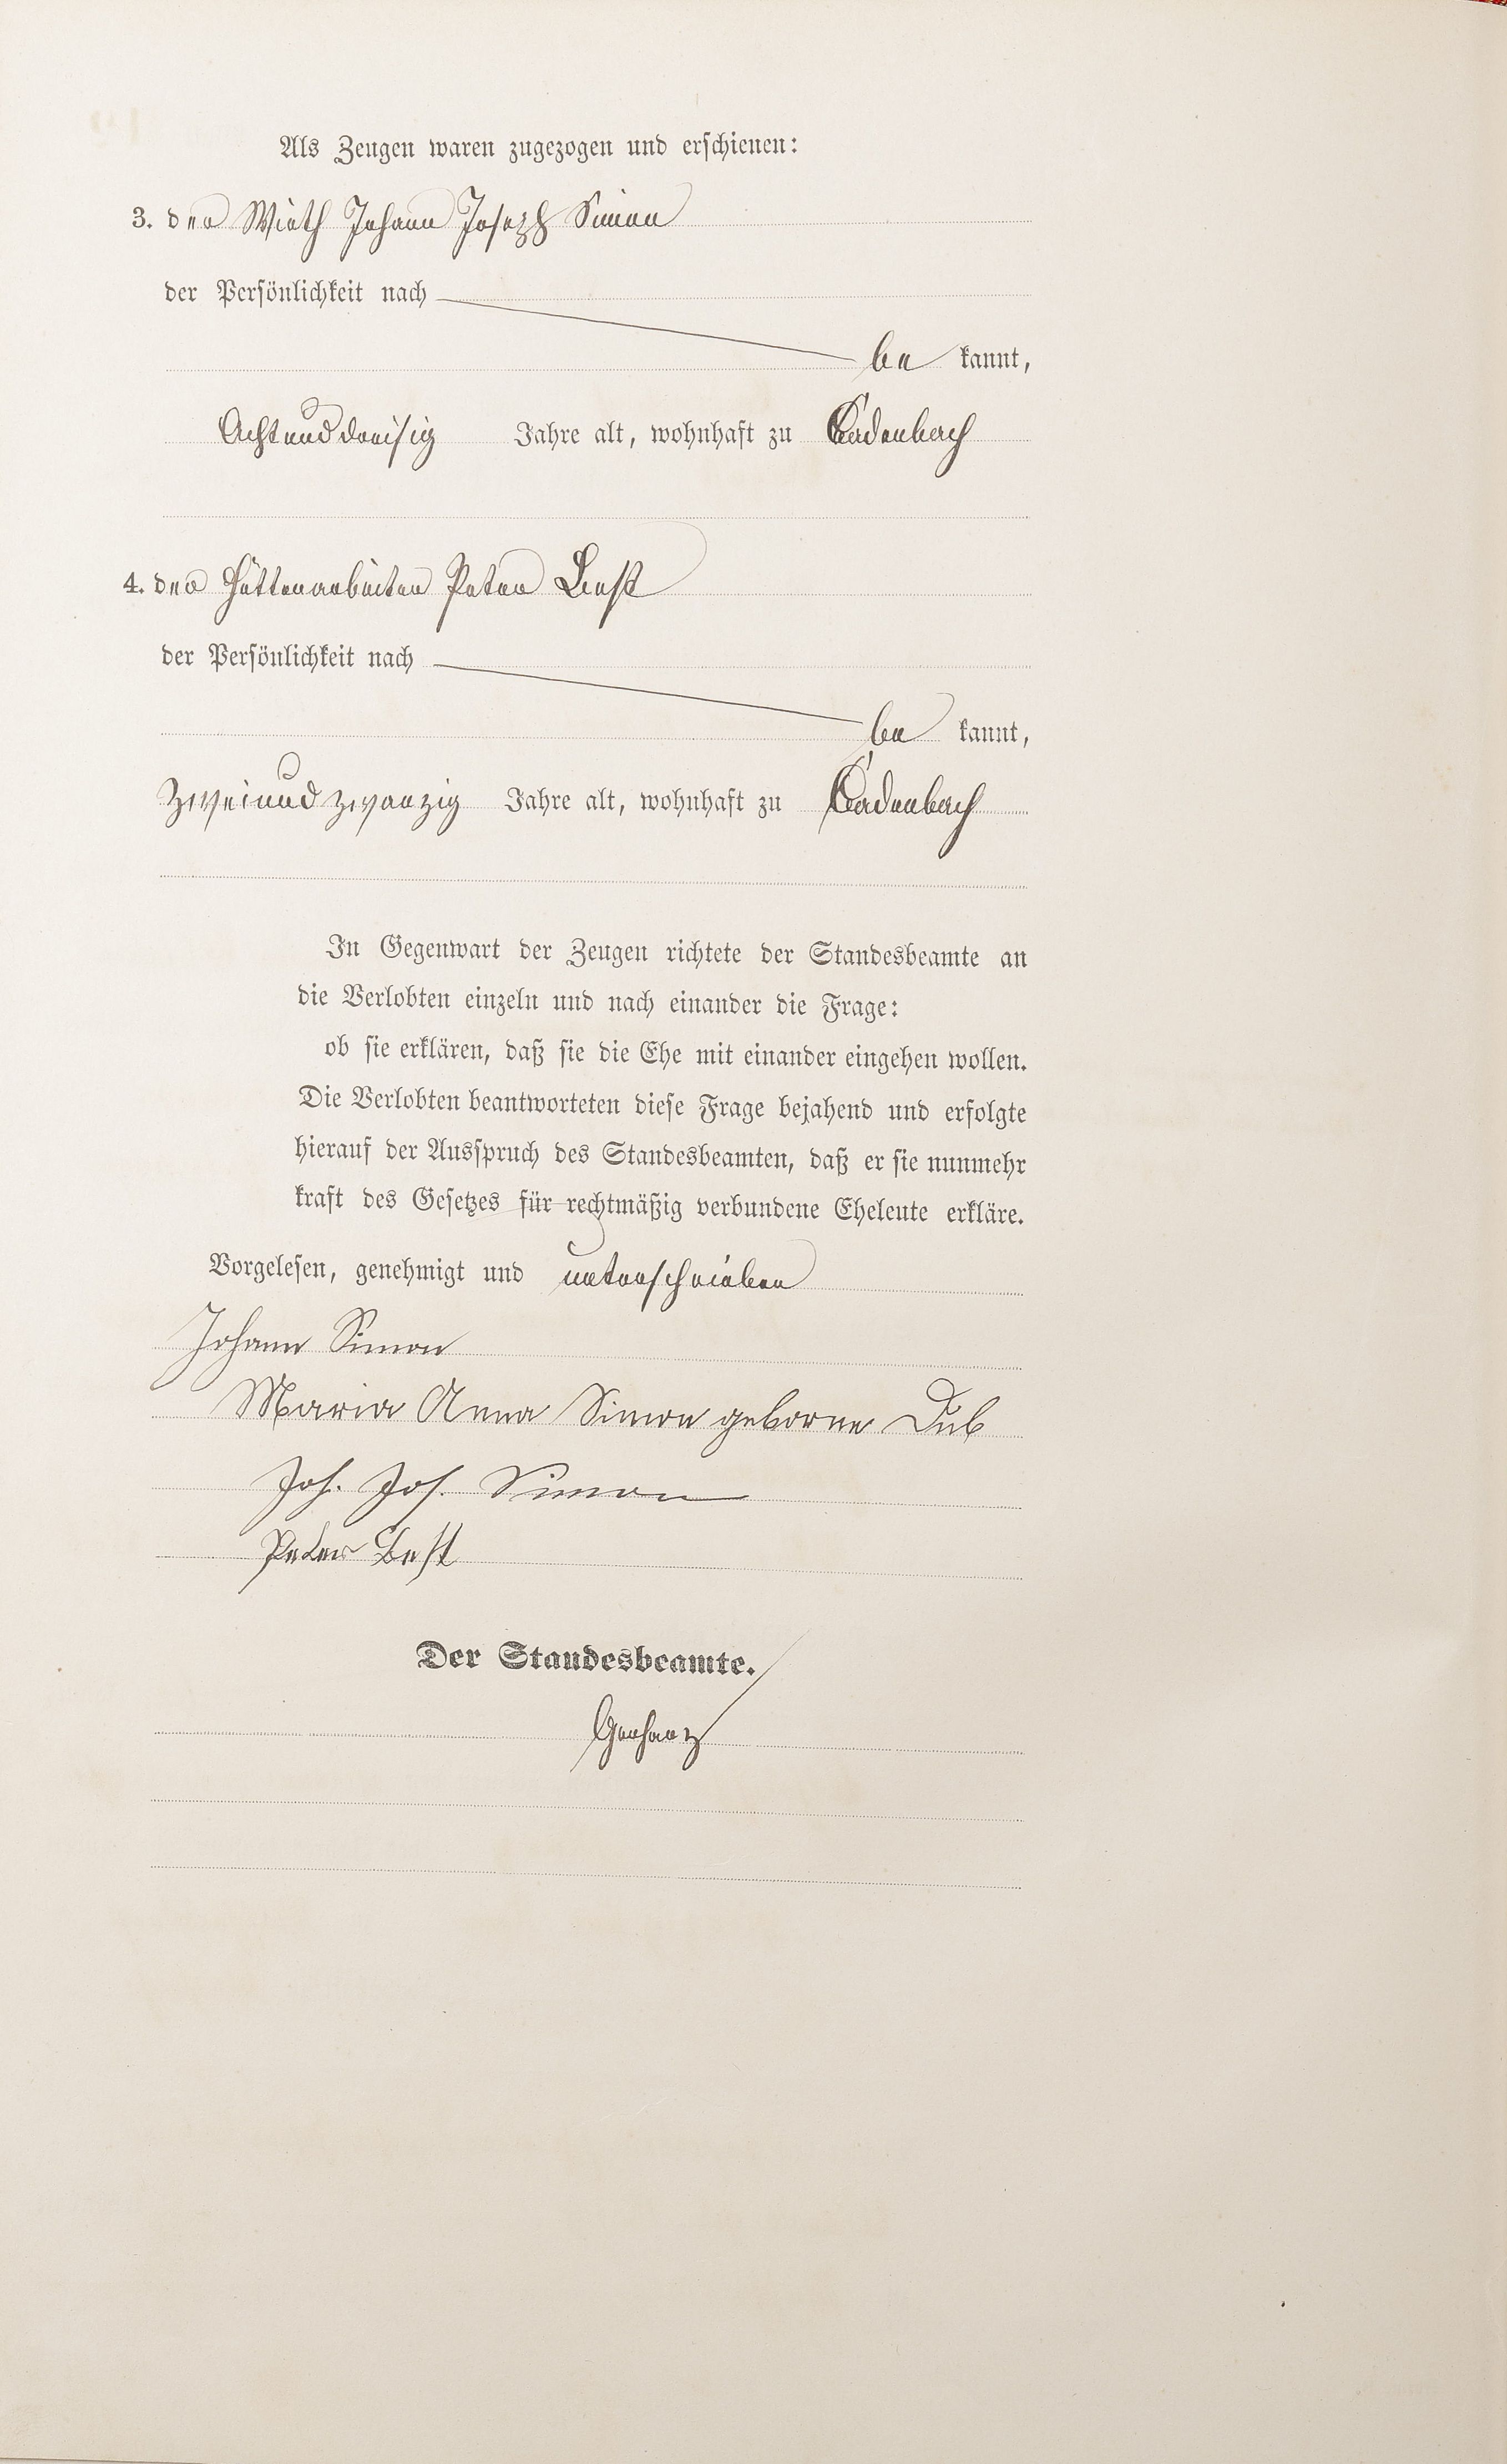 Als Zeugen waren zugezogen und erschienen:
3. der Wirth Johann Joseph Simon
der Persönlichkeit nach
be kannt,
Achtunddreisig Jahre alt, wohnhaft zu Cadenbach
4. der Hüttenarbeiter Peter Best
der Persönlichkeit nach
be kannt,
Zweiundzwanzig Jahre alt, wohnhaft zu Cadenbach
In Gegenwart der Zeugen richtete der Standesbeamte an
die Verlobten einzeln und nach einander die Frage:
ob sie erklären, daß sie die Ehe mit einander eingehen wollen.
Die Verlobten beantworteten diese Frage bejahend und erfolgte
hierauf der Ausspruch des Standesbeamten, daß er sie nunmehr
kraft des Gesetzes für rechtmäßig verbundene Eheleute erkläre.
Vorgelesen, genehmigt und unterschrieben
Johann Simon
Maria Anna Simon geborne Düb
Joh. Jos. Simon
Peter Best
Der Standesbeamte.
Gerharz